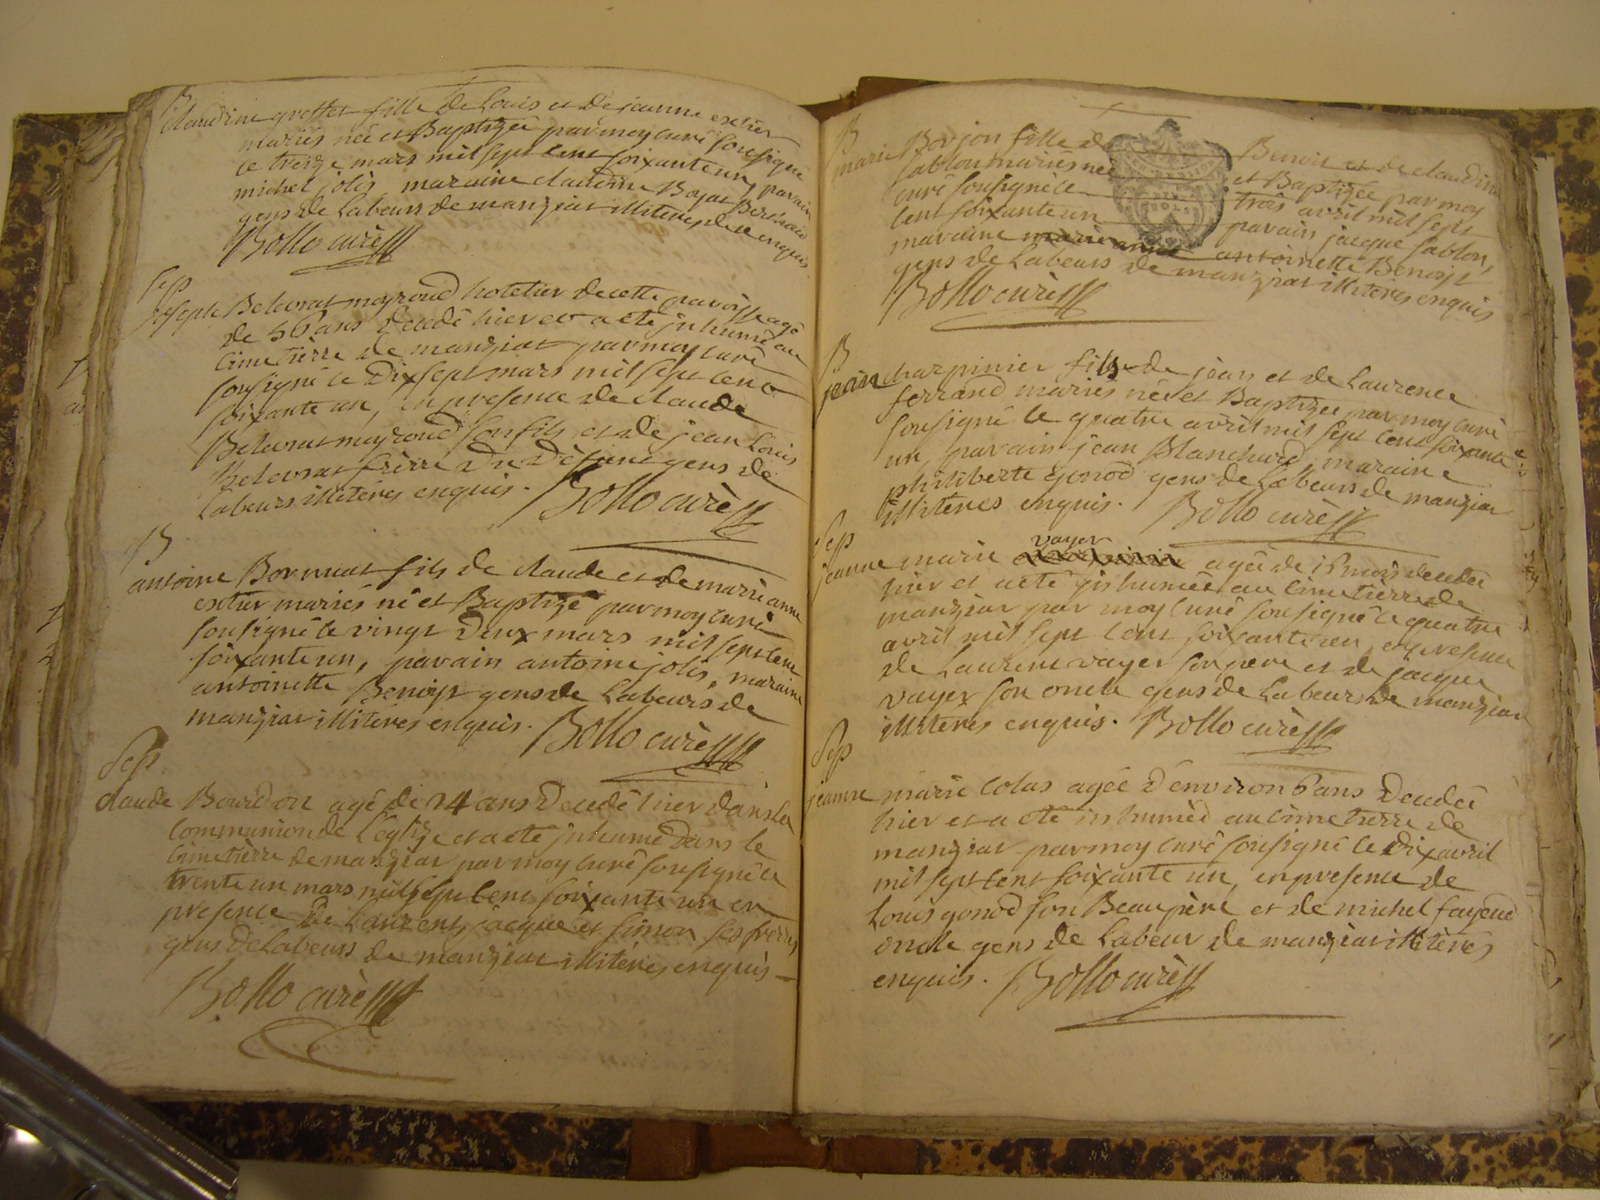 B
Claudine grosset fille de Louis et de jeanne extier
mariés née et Baptizée par moy curé sousigné
ce treize mars mil sept cent soixante un, parain
michel jolis, maraine claudine Bojat Berthaud
gens de Labeurs de manziat illiterés de ce enquis
Bollo curé
Sep
joseph Belourat mayroud hotelier de cette paroisse agé
de 56 ans decedé hier et a eté inhumé au
Cimetière de manziat par moy curé
sousigné le Dix sept mars mil sept cent
soixante un, en presence de claude
Belourat mayroud son fils et de jean Louis
Belourat frère du Défunt gens de
Labeurs illiterés enquis. Bollo curé
B
antoine Bornuat fils de claude et de marie anne
extier mariés né et Baptizé par moy curé
sousigné le vingt deux mars mil sept cent
soixante un, parain antoine jolis, maraine
antoinette Benoist gens de Labeurs de
manziat illiterés enquis. Bollo curé
Sep
claude Bourdon agé de 24 ans Decedé hier dans la
Communion de L'église et a eté inhumé Dans le
Cimetière de manziat par moy curé sousigné le
trente un mars mil sept cent soixante un en
presence De Laurent, jacque et simon ses freres
gens de Labeurs de manziat illiterés enquis
Bollo curé
B
marie Borjon fille de Benoit et de claudine
sablon mariés née et Baptizée par moy
curé sousigné le trois avril mil sept
cent soixante un parain jacque sablon,
maraine antoinette Benoist
gens de Labeurs de manziat illiterés enquis
Bollo curé
B
jean charpinier fils de jean et de Laurence
ferrand mariés né et Baptizé par moy curé
sousigné le quatre avril mil sept cent soixante
un, parain jean Blanchard, maraine
philiberte gonod gens de Labeurs de manziat
illiterés enquis. Bollo curé
Sep
vayer
jeanne marie agée de 18 mois decedée
hier et a eté inhumée au Cimetierre de
manziat par moy curé sousigné le quatre
avril mil sept cent soixante un en presence
de Laurent vayer son pere et de jacque
vayer son oncle gens de Labeurs de manziat
illiterés enquis. Bollo curé
Sep
jeanne marie Colas agée d'environ 6 ans Decedée
hier et a eté inhumée au Cimetierre de
manziat par moy curé sousigné le dix avril
mil sept cent soixante un, en presence de
Louis gonod son Beaupère et de michel
oncle gens de Labeur de manziat illiterés
enquis. Bollo curé